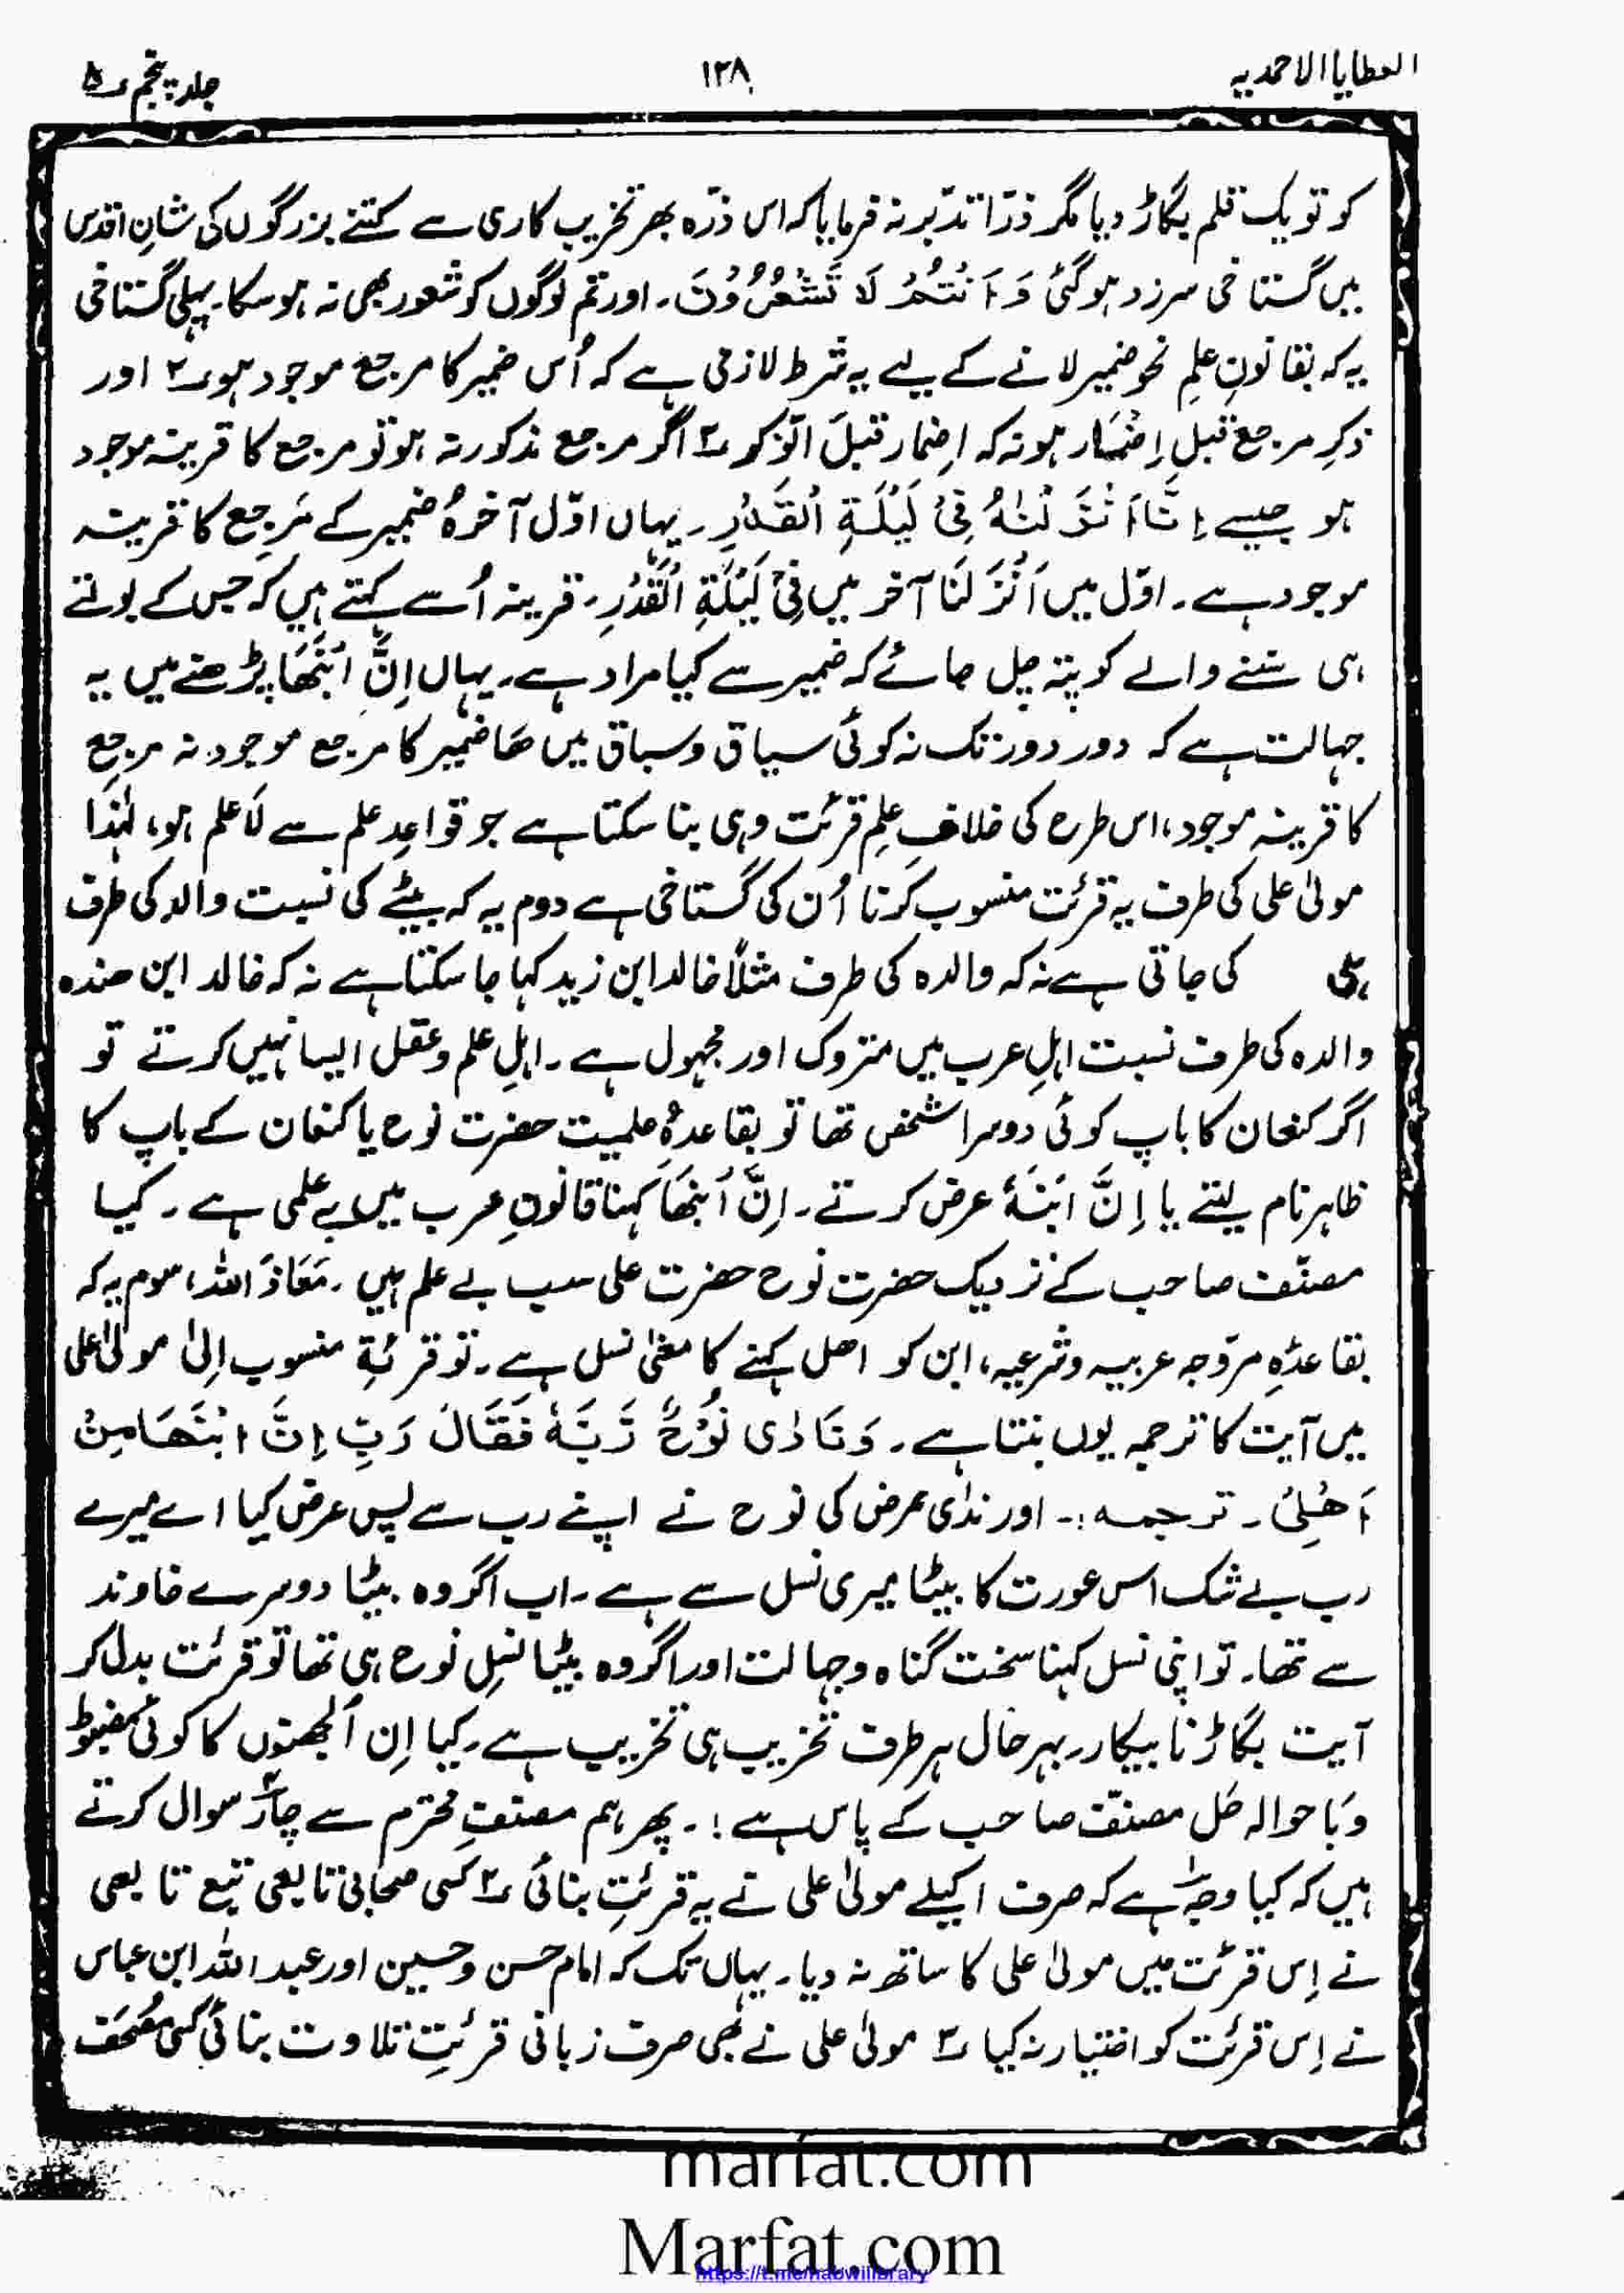 العطایا الاحمدیہ
۱۲۸
جلد پنجم ۵
کو تو یک قلم بگاڑ دیا مگر ذرّا تدبّر نہ فرمایا کہ اس ذرّہ بھر تخریب کاری سے کتنے بزرگوں کی شانِ اقدس
میں گستاخی سرزد ہو گئی وَ اَنْتُمْ لَا تَشْعُرُوْنَ۔ اور تم لوگوں کو شعور بھی نہ ہو سکا۔ پہلی گستاخی
یہ کہ بقانونِ علمِ نحو ضمیر لانے کے لیے یہ شرط لازمی ہے کہ اُس ضمیر کا مرجع موجود ہو ۲ اور
ذکرِ مرجع قبلِ اِضمار ہو نہ کہ اضمار قبلَ الذکر ۳ اگر مرجع مذکور نہ ہو تو مرجع کا قرینہ موجود
ہو جیسے اِنَّا اَنْزَلْنٰهُ فِیْ لَیْلَةِ الْقَدْرِ۔ یہاں اوّل آخر هُ ضمیر کے مَرجع کا قرینہ
موجود ہے۔ اوّل میں اَنْزَلْنَا آخر میں فِیْ لَیْلَةِ الْقَدْرِ۔ قرینہ اُسے کہتے ہیں کہ جس کے بولتے
ہی سننے والے کو پتہ چل جائے کہ ضمیر سے کیا مراد ہے۔ یہاں اِنَّ ابْنَهَا پڑھنے میں یہ
جہالت ہے کہ دور دور تک نہ کوئی سیاق و سباق میں ھَا ضمیر کا مرجع موجود نہ مرجع
کا قرینہ موجود، اس طرح کی خلافِ علم قرئت وہی بنا سکتا ہے جو قواعدِ علم سے لَا علم ہو، لہٰذا
مولیٰ علی کی طرف یہ قرئت منسوب کرنا اُن کی گستاخی ہے دوم یہ کہ بیٹے کی نسبت والد کی طرف
ہی کی جاتی ہے نہ کہ والدہ کی طرف مثلًا خالد ابن زید کہا جا سکتا ہے نہ کہ خالد ابن ھندہ
والدہ کی طرف نسبت اہلِ عرب میں متروک اور مجہول ہے۔ اہلِ علم و عقل ایسا نہیں کرتے تو
اگر کنعان کا باپ کوئی دوسرا شخص تھا تو بقاعدہُ علمیت حضرت نوح یا کنعان کے باپ کا
ظاہر نام لیتے یا اِنَّ ابْنَهٗ عرض کرتے۔ اِنَّ ابْنَهَا کہنا قانونِ عرب میں بے علمی ہے۔ کیا
مصنّف صاحب کے نزدیک حضرت نوح حضرت علی سب بے علم ہیں۔ مَعَاذَ اللہ، سوم یہ کہ
بقاعدہِ مروّجہ عربیہ و شرعیہ، ابن کو اھل کہنے کا معنیٰ نسل ہے۔ تو قرئۃِ منسوب اِلیٰ مولیٰ علی
میں آیت کا ترجمہ یوں بنتا ہے۔ وَنَادٰی نُوْحٌ رَّبَّهٗ فَقَالَ رَبِّ اِنَّ ابْنَهَا مِنْ
اَهْلِیْ۔ ترجمہ:۔ اور ندائی عرض کی نوح نے اپنے رب سے پس عرض کیا اے میرے
رب بے شک اس عورت کا بیٹا میری نسل سے ہے۔ اب اگر وہ بیٹا دوسرے خاوند
سے تھا۔ تو اپنی نسل کہنا سخت گناہ و جہالت اور اگر وہ بیٹا نسلِ نوح ہی تھا تو قرئت بدل کر
آیت بگاڑنا بیکار۔ بہر حال ہر طرف تخریب ہی تخریب ہے۔ کیا اِن اُلجھنوں کا کوئی مضبوط
وَبَا حوالہ حَل مصنّف صاحب کے پاس ہے؛۔ پھر ہم مصنفِ محترم سے چار۴ سوال کرتے
ہیں کہ کیا وجہ۱ ہے کہ صرف اکیلے مولیٰ علی نے یہ قرئتِ بنائی ۲ کسی صحابی تابعی تبع تابعی
نے اِس قرئت میں مولیٰ علی کا ساتھ نہ دیا۔ یہاں تک کہ امام حسن و حسین اور عبد اللہ ابن عباس
نے اِس قرئت کو اختیار نہ کیا ۳ مولیٰ علی نے بھی صرف زبانی قرئتِ تلاوت بنائی کسی مُصْحَف
marfat.com
Marfat.com
https://t.me/nabwilibrary